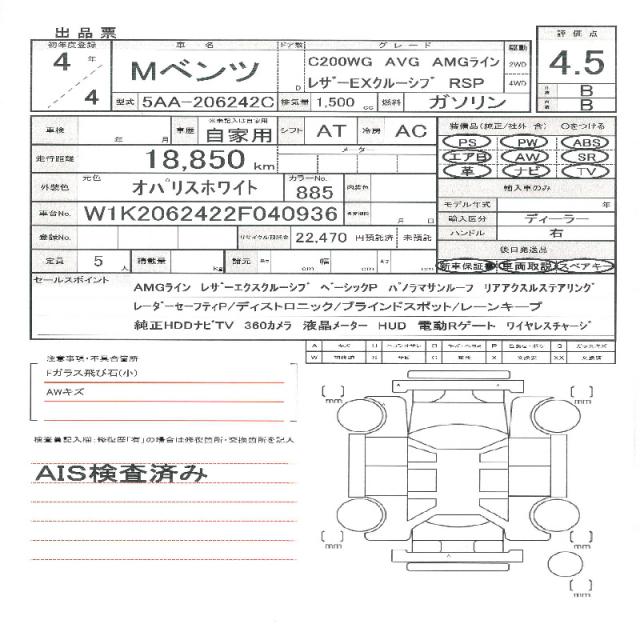 出品票
初年度登録 車名 ドア数 グレード 駆動 評価点
4 年 Mベンツ D C200WG AVG AMGライン 2WD 4.5
4 レザーEXクルーシブ RSP 4WD B
型式 5AA-206242C 排気量 1,500 cc 燃料 ガソリン B
車検 年 月 車歴 ※未記入は自家用 自家用 シフト AT 冷房 AC
装備品(純正/社外 含) Oをつける
PS PW ABS
走行距離 18,850 km メーター
エアB AW SR
革 ナビ TV
外装色 元色 オパリスホワイト カラーNo. 885 内装色
輸入車のみ
モデル年式 年
車台No. W1K2062422F040936 月 日
輸入区分 ディーラー
ハンドル 右
登録No. リサイクル預託金 22,470 円預託済 未預託
後日発送品
定員 5 人 積載量 kg 諸元 長さ cm 幅 cm 高さ cm
新車保証書 車両取説 スペアキー
セールスポイント
AMGライン レザーエクスクルーシブ ベーシックP パノラマサンルーフ リアアクスルステアリング
レーダーセーフティP/ディストロニック/ブラインドスポット/レーンキープ
純正HDDナビTV 360カメラ 液晶メーター HUD 電動Rゲート ワイヤレスチャージ
注意事項・不具合箇所
Fガラス飛び石(小)
AWキズ
検査員記入欄:修復歴「有」の場合は修復箇所・交換箇所を記入
AIS検査済み
mm mm
mm mm
mm